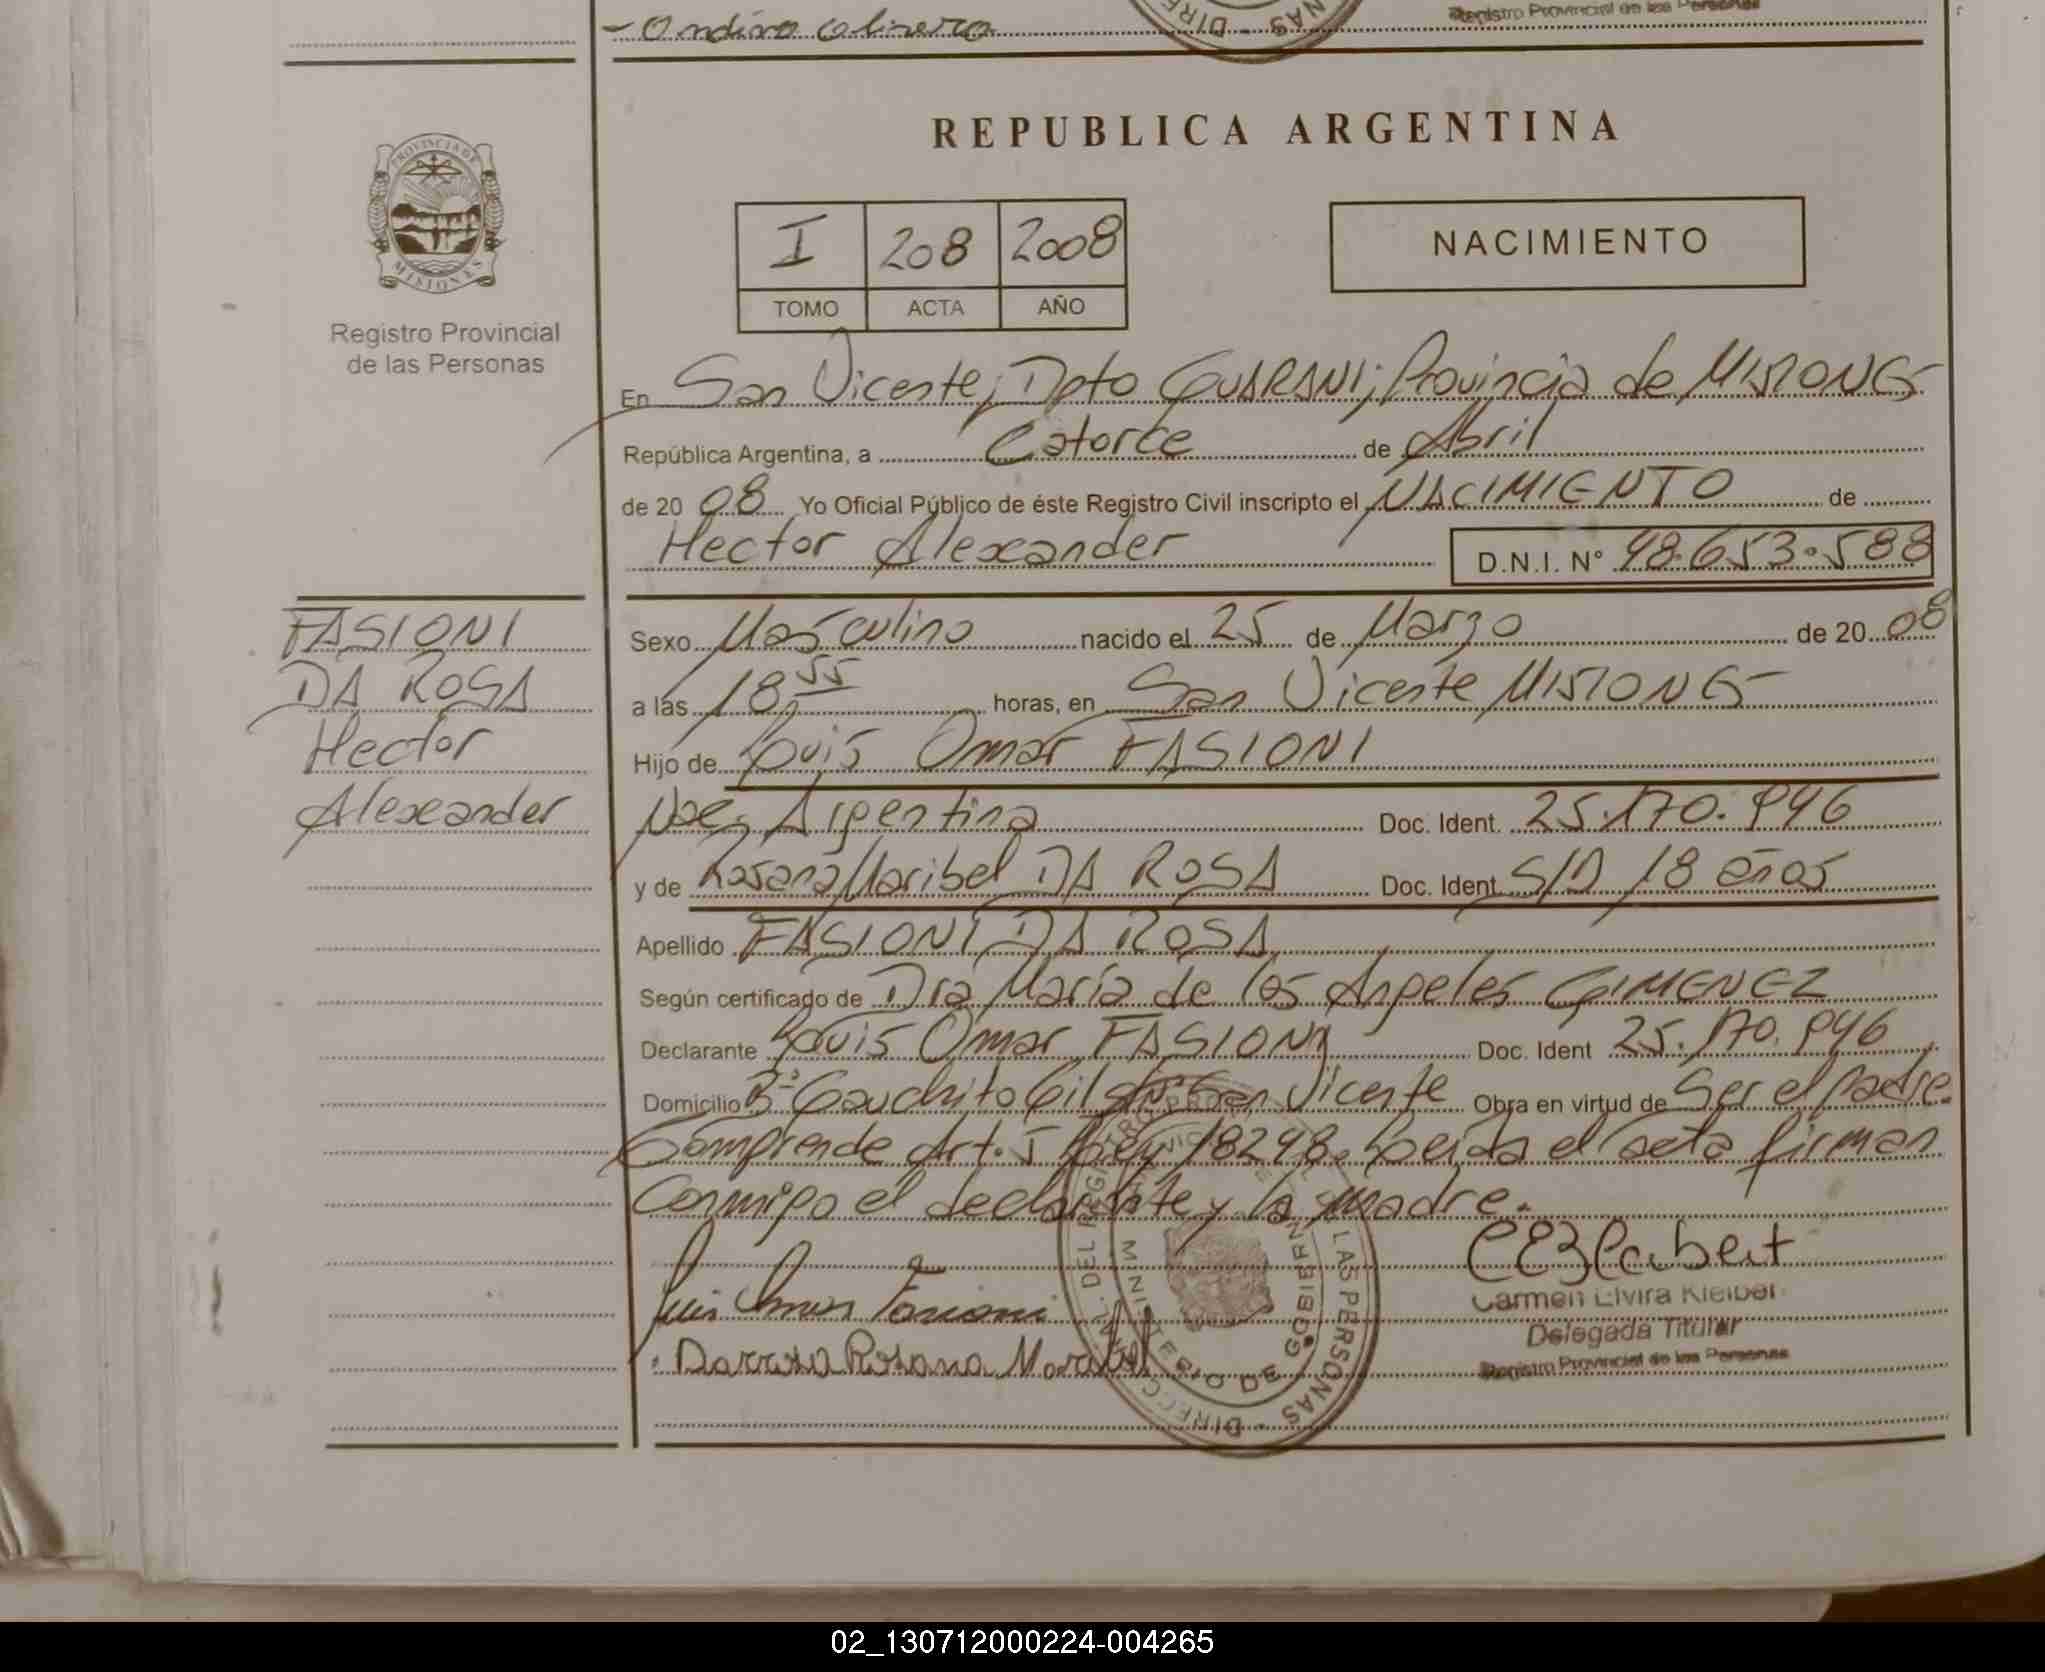 - Ondina Olivera
Registro Provincial de las Personas
PROVINCIA DE
MISIONES
Registro Provincial
de las Personas
REPUBLICA ARGENTINA
I 208 2008
TOMO ACTA AÑO
NACIMIENTO
En San Vicente; Dpto GUARANI; Provincia de MISIONES
República Argentina, a Catorce de Abril
de 20 08 Yo Oficial Público de éste Registro Civil inscripto el NACIMIENTO de
Hector Alexander D.N.I. Nº 48.653.588
FASIONI
DA ROSA
Hector
Alexander
Sexo Masculino nacido el 25 de Marzo de 20 08
a las 18 55 horas, en San Vicente MISIONES
Hijo de Luis Omar FASIONI
Nac. Argentina Doc. Ident. 25.170.946
y de Rosana Maribel DA ROSA Doc. Ident. S/D 18 años
Apellido FASIONI DA ROSA
Según certificado de Dra María de los Angeles GIMENEZ
Declarante Luis Omar FASIONI Doc. Ident 25.170.946
Domicilio Bº Gauchito Gil San Vicente Obra en virtud de Ser el padre.
Comprende Art. 5 Ley 18248. Leida el acta firman
Conmigo el declarante y la madre.
Luis Omar Fasioni
Darrosa Rosana Maribel
Carmen Elvira Kleiber
Delegada Titular
Registro Provincial de las Personas
MINISTERIO DE GOBIERNO
LAS PERSONAS
02_130712000224-004265